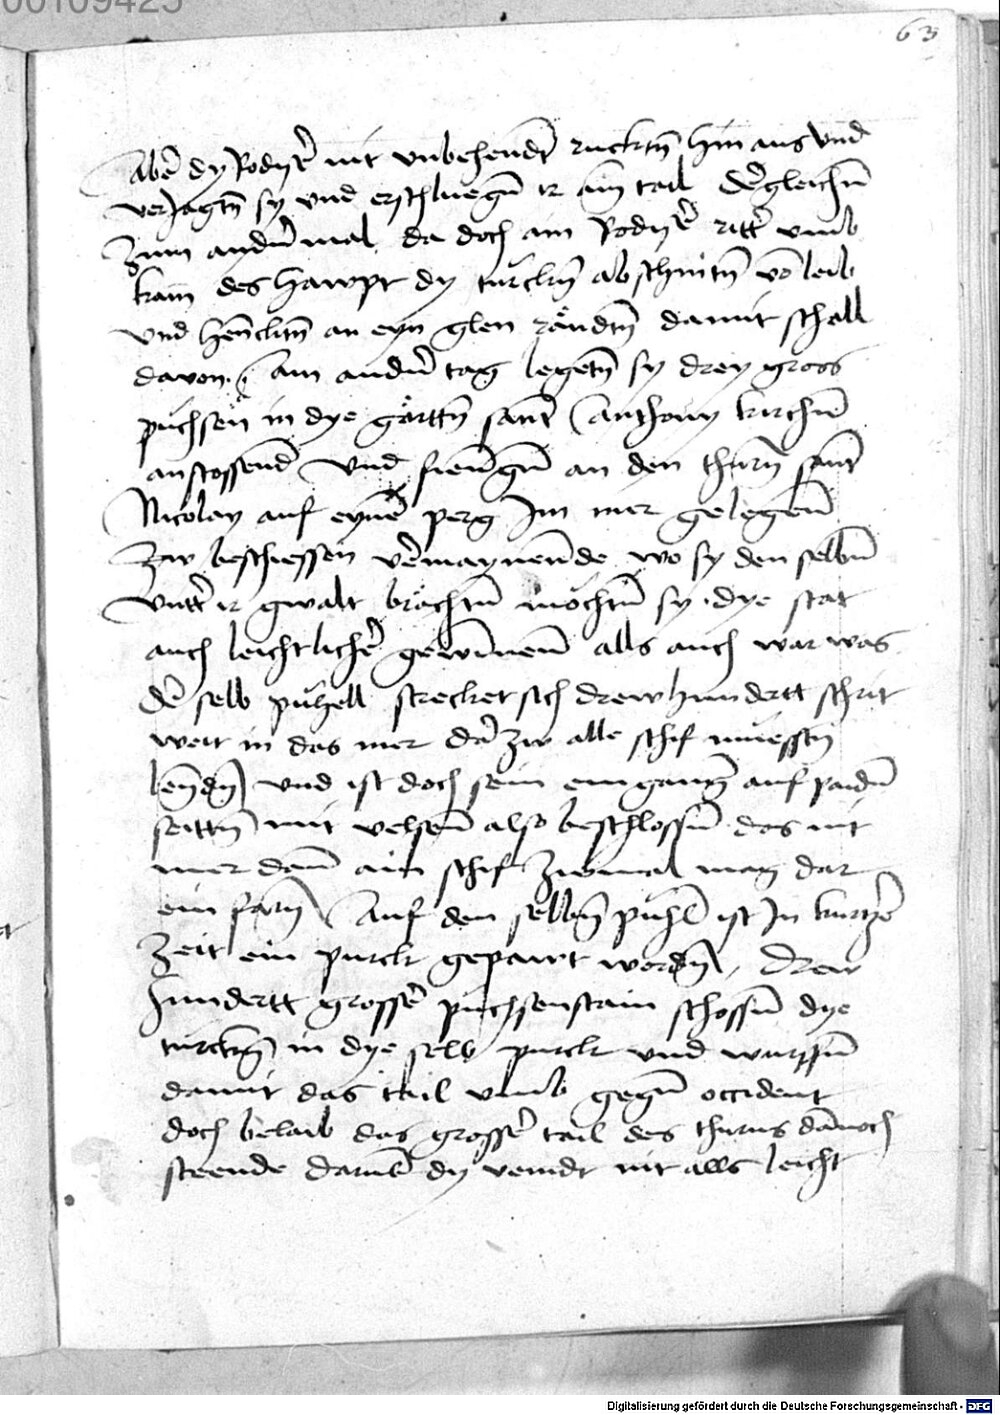 00109425
63
Aber dy Rodyser nit unbehendt ruckten hin aus und
verjagten sy und erschluegen ir ain tail Dergleichen
zum andern mal da doch ain Rodyser ritter umb
kam des hawpt dy turckn abschniten von leib
und henckten an eyn glen ränndten damit schall
davon. Am andern tag legeten sy drey gross
püchsen in dye gärttn sant Anthony kirchen
anstossend und fiengen an den thurn sant
Nicolay auf eynem perg Im mer gelegenn
Zw beschiessen vermaynende wo sy den selben
unter ir gwalt brächten möchten sy dye stat
auch leichtlicher gewinnenn alls auch war was
der selb pühell strecket sich drewhundertt schrit
weit in das mer Da zw alle schif müessen
lenden und ist doch sein eingang auf paiden
seitten mit velsen also beschlossen das nit
mer dann ain schif zumal mag dar
ein faren Auf den selben pühel ist In kurtzer
Zeit ein purck gepawt worden, Drew
hundertt grosser püchsenstain schossen dye
turcken in dye selb purck und wurffen
damit das tail umb gegen occident
doch belaib das grosser tail des thurns dannoch
steende darumb dy veindt nit alls leicht
Digitalisierung gefördert durch die Deutsche Forschungsgemeinschaft - DFG